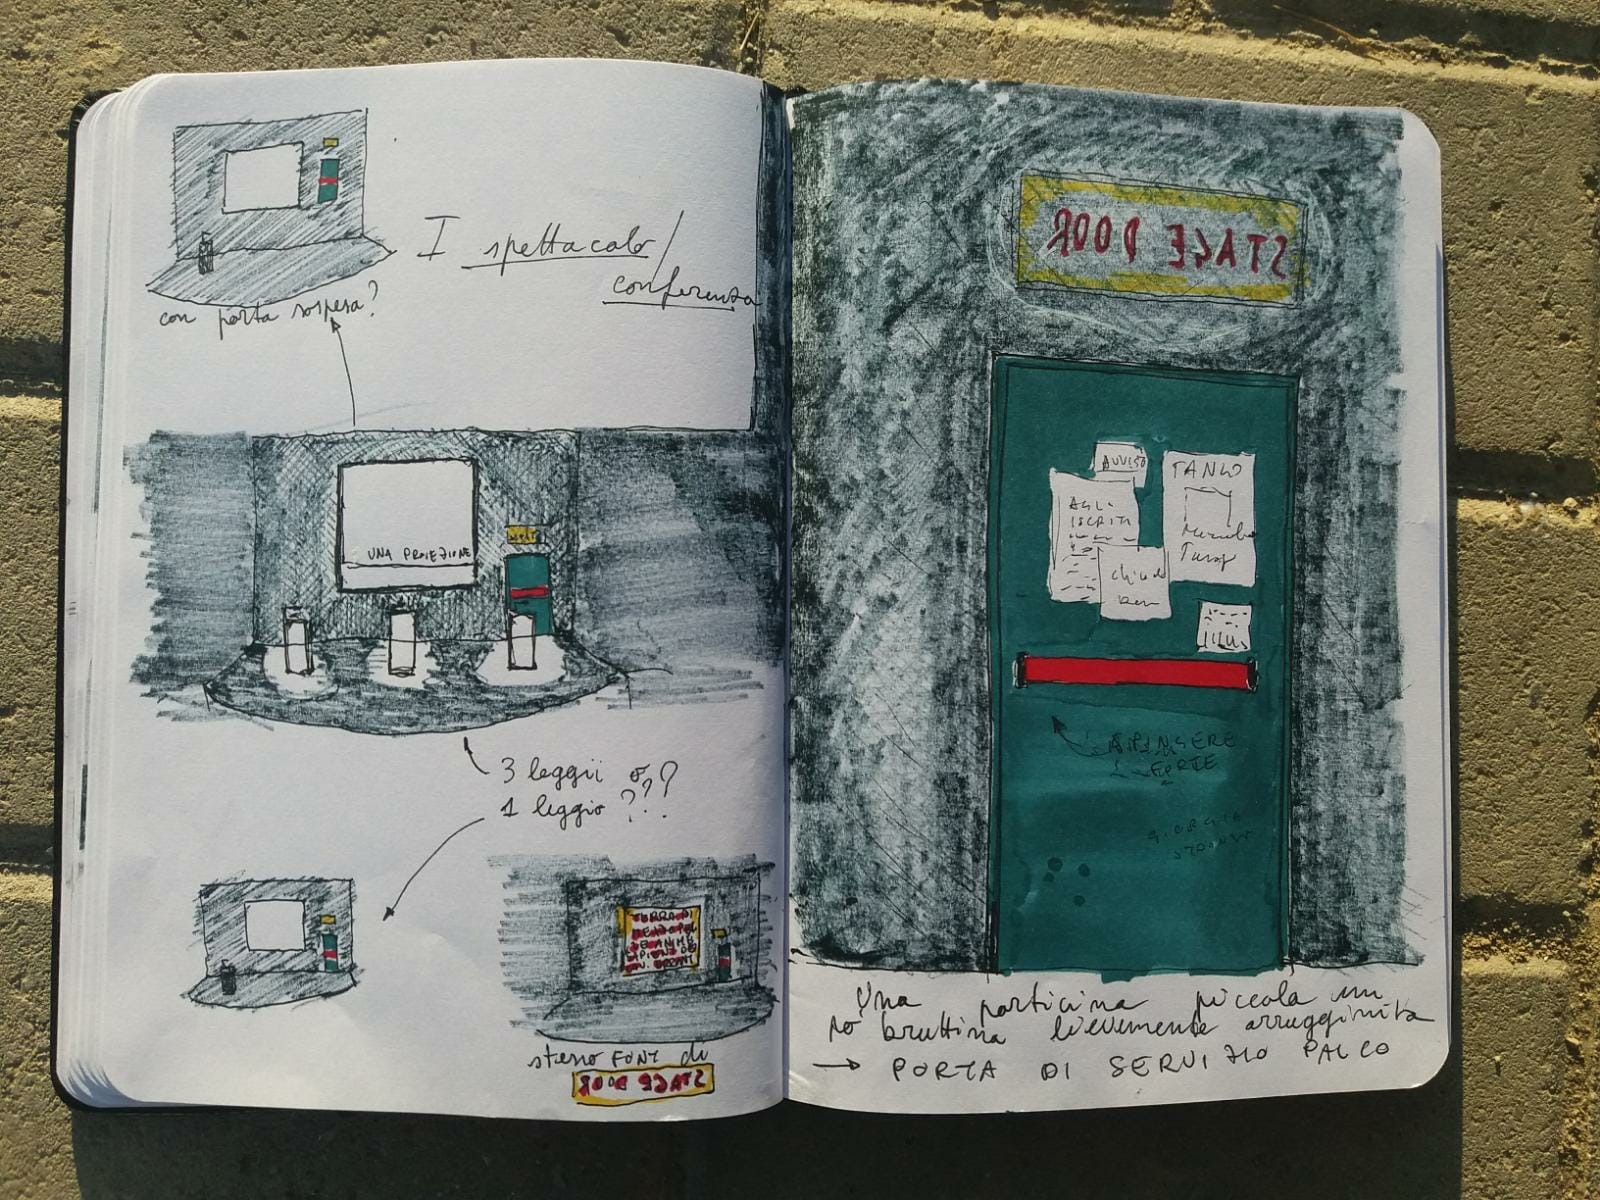 I spettacolo/
conferenza
con porta sospesa?
UNA PROIEZIONE
3 leggii o
1 leggio ???
TERRA DI
stesso FONT di
STAGE DOOR
STAGE DOOR
AVVISO
AGLI
ISCRITTI
TANGO
SPINGERE
FORTE
Una porticina piccola un
pò bruttina lievemente arrugginita
→ PORTA DI SERVIZIO PALCO